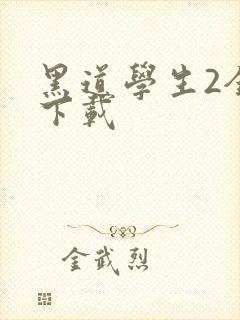 黑道學生2全
下載
金武烈